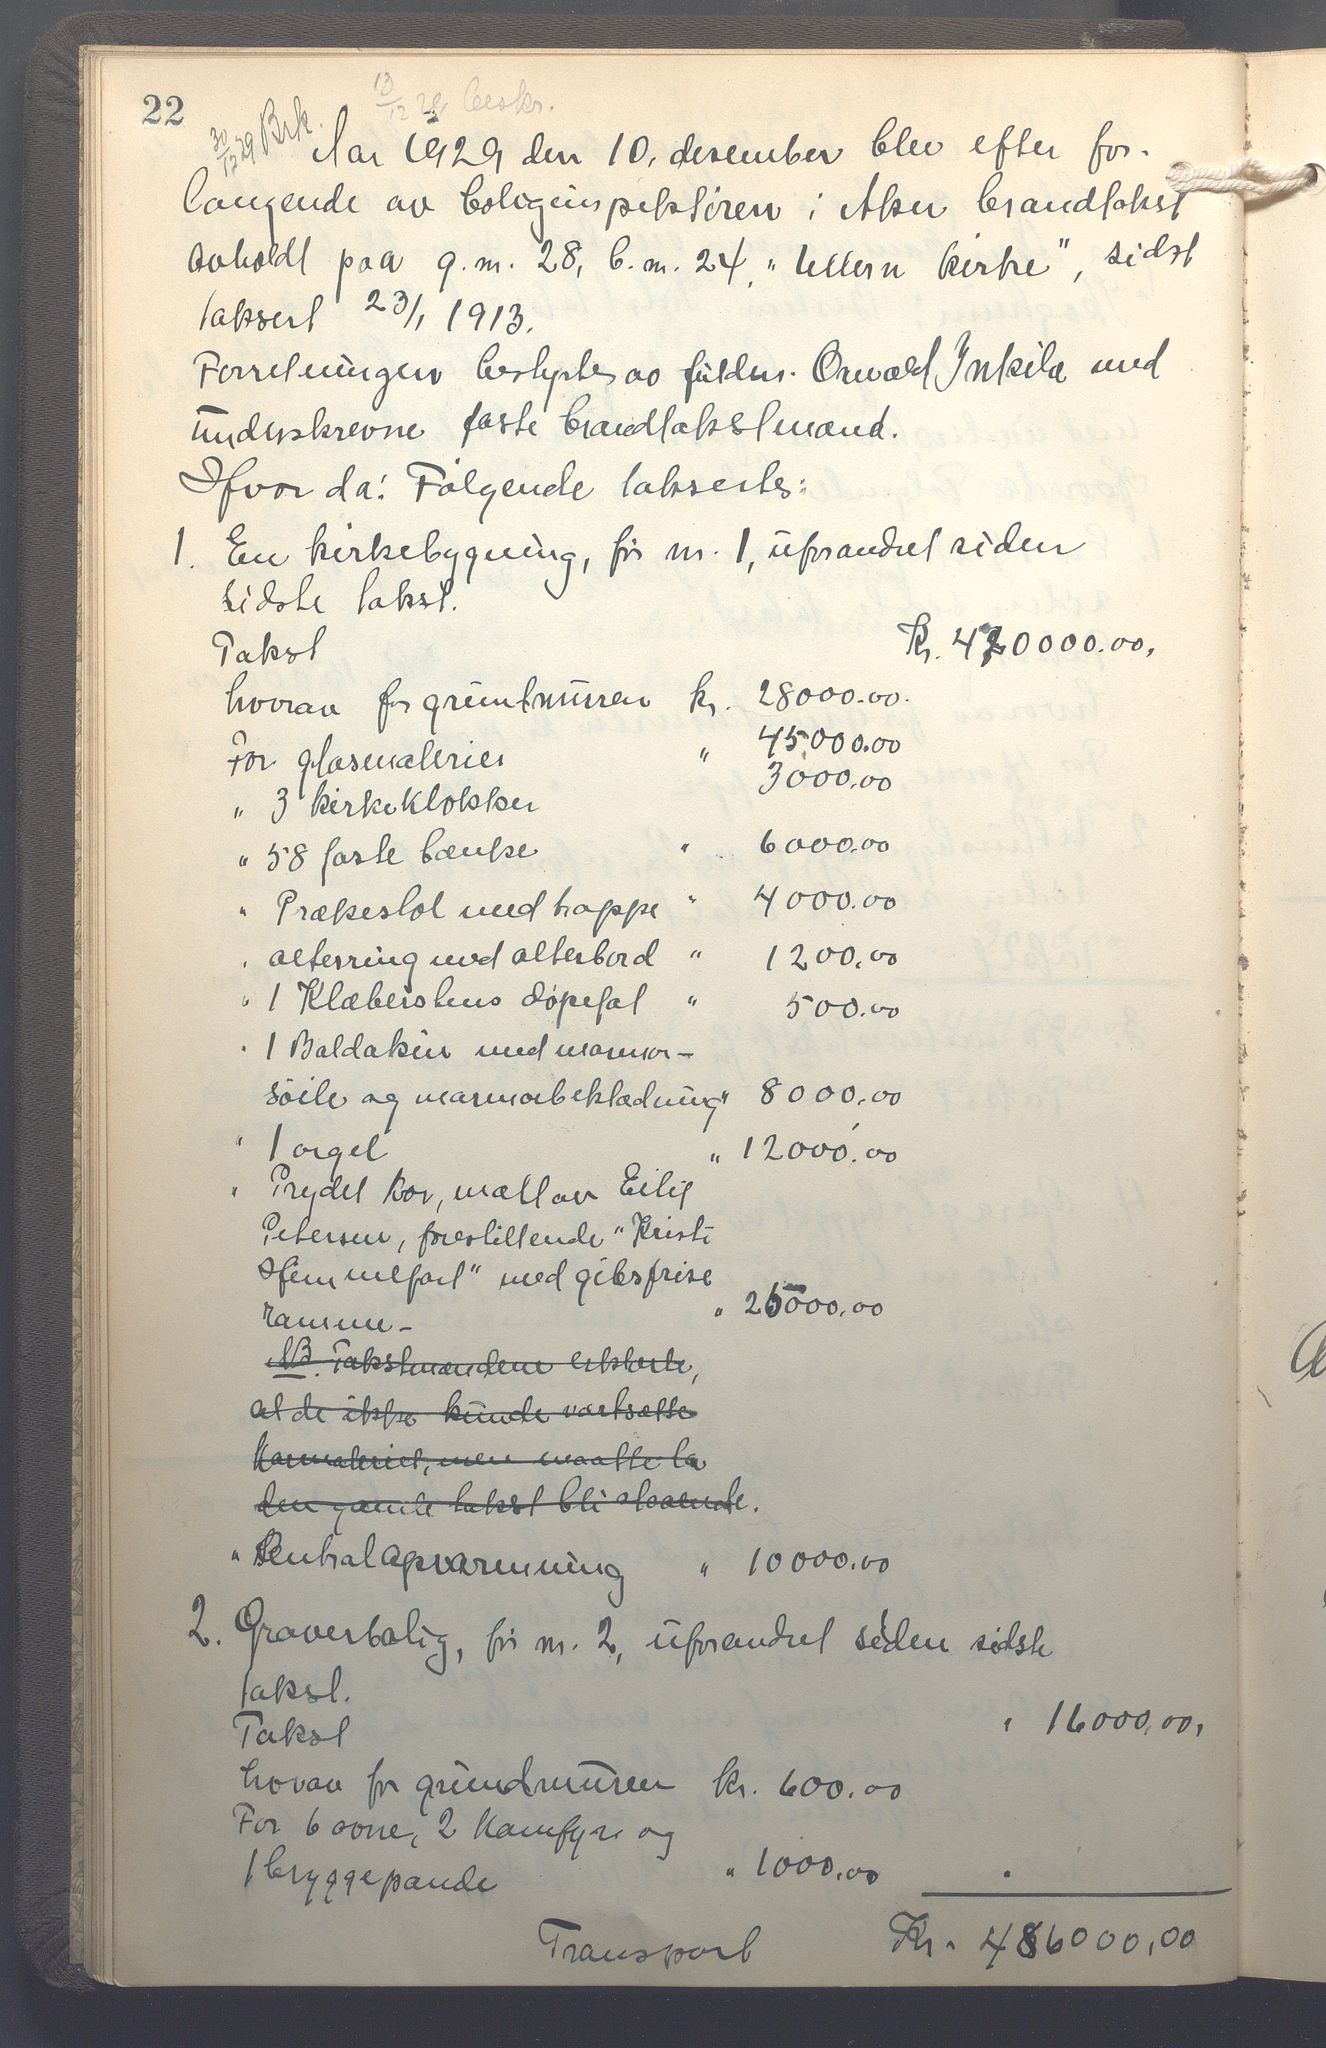 22
13/12 29 beskr.
30/12 29 Brk.
Aar 1929 den 10. desember blev efter for-
langende av boliginspektören i Aker brandtakst
avholdt paa g.nr. 28, b.nr. 24, "Ullern kirke", sidst
taksert 23/1 1913.
Forretningen bestyrtes av fuldm. Oswald Inkila med
underskrevne faste brandtakstmænd.
Hvor da: Følgende taksertes:
1. En kirkebygning, før nr. 1, uforandret siden
sidste takst.
Takst Kr. 470000.00.
hvorav for grundmuren kr. 28000.00.
For glasmalerier " 45000.00
" 3 kirkeklokker 3000.00
" 58 faste bænke " 6000.00
" Prækestol med trappe " 4000.00
" alterring med alterbord " 1200.00
" 1 Klæberstens døpefat " 500.00
" 1 Baldakin med marmor-
söile og marmorbeklædning " 8000.00
" 1 orgel " 12000.00
" Prydet kor, malt av Eilif
Petersen, forestillende "Kristi
Himmelfart" med gibsfrise
ramme - " 25000.00
NB. Takstmændene erklærte,
at de ikke kunde værtsætte
kormaleriet, men maatte la
den gamle takst bli staaende.
" Sentralopvarmning " 10000.00
2. Graverbolig, før nr. 2, uforandret siden sidste
takst.
Takst " 16000.00.
hvorav for grundmuren kr. 600.00
For 6 ovne, 2 Komfyr og
1 bryggepande " 1000.00
Transport Kr. 486000.00